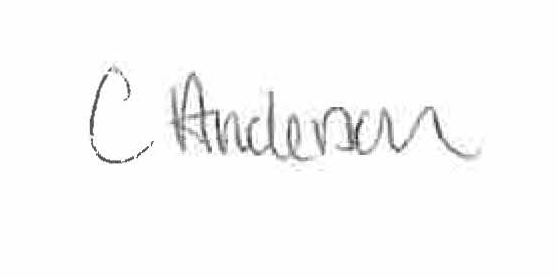 C Anderson